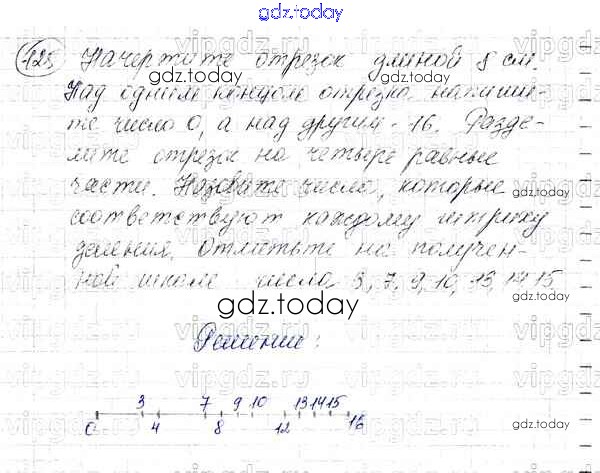 gdz.today
125 Начертите отрезок длиной 8 см.
gdz.today gdz.today
Над одним концом отрезка напиши-
те число 0, а над другим - 16. Разде-
лите отрезок на четыре равные
части. Назовите числа, которые
gdz.today gdz.today
соответствуют каждому штриху
деления. Отметьте на получен-
ной шкале числа 3, 7, 9, 10, 13, 14 15
gdz.today
gdz.today
Решение:
vipgdz.ru vipgdz.ru vipgdz.ru
3 7 9 10 13 14 15
0 4 8 12 16
gdz.today gdz.today
gdz.today